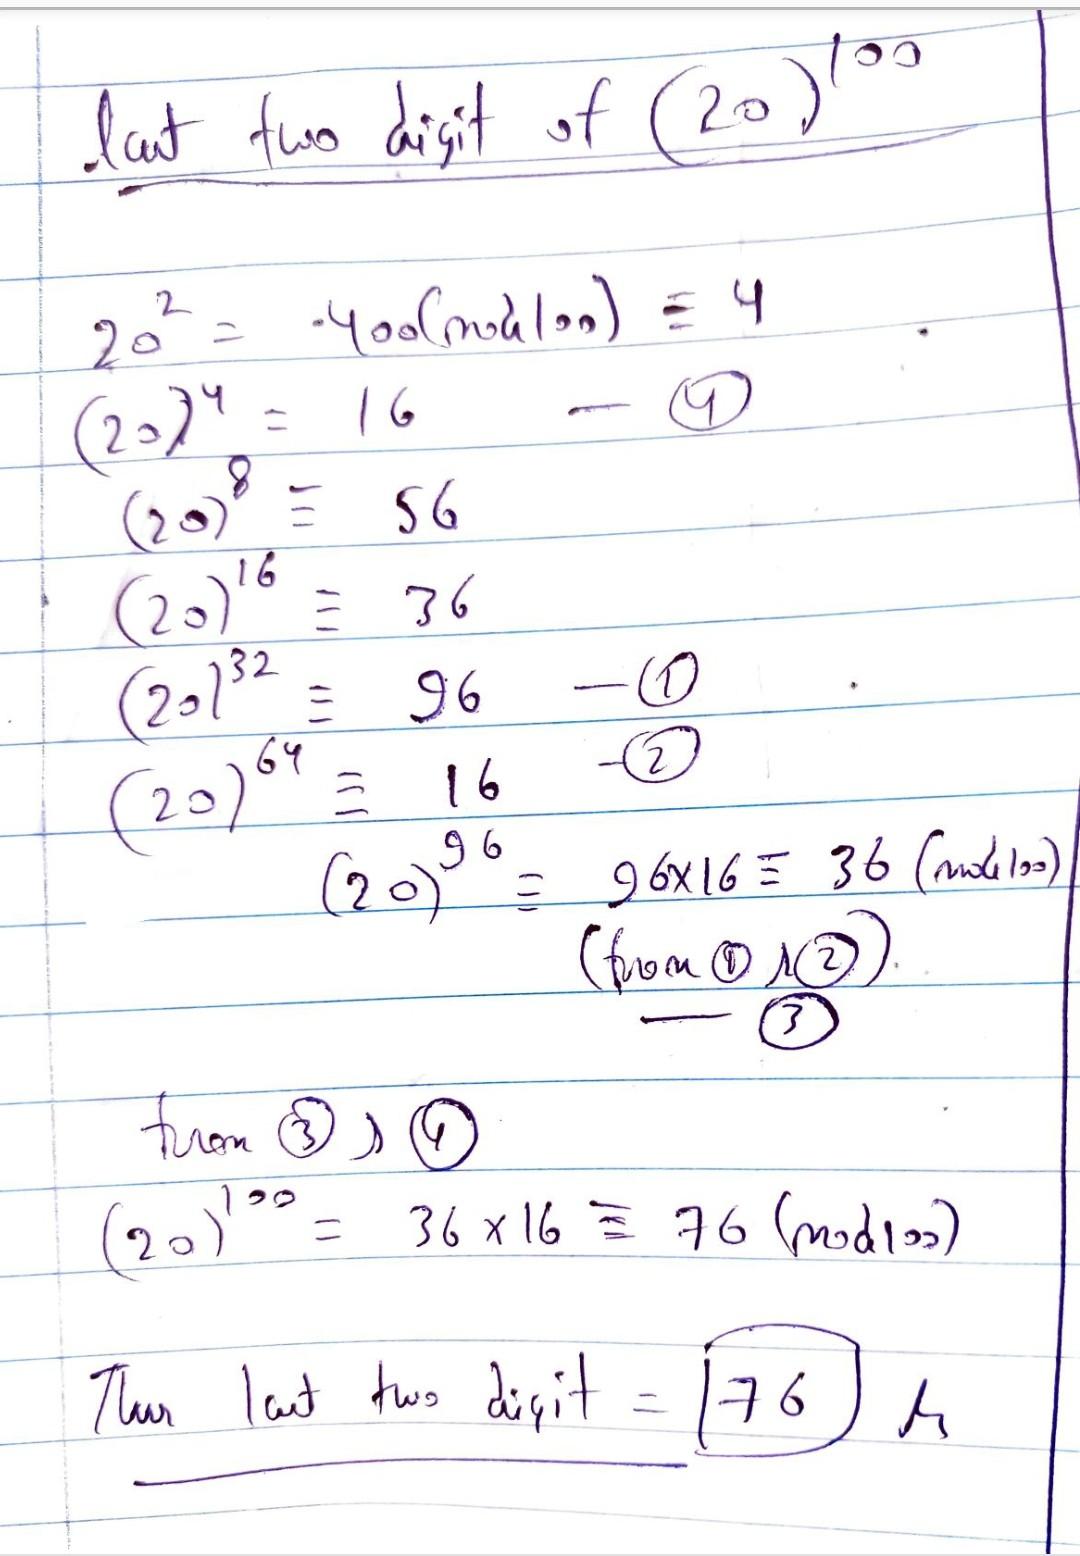 last two digit of (20)^100
20^2 = 400(mod 100) ≡ 4
(20)^4 = 16 — ④
(20)^8 ≡ 56
(20)^16 ≡ 36
(20)^32 ≡ 96 — ①
(20)^64 ≡ 16 — ②
(20)^96 ≡ 96×16 ≡ 36 (mod 100)
(from ① & ②).
— ③
from ③ & ④
(20)^100 = 36 × 16 ≡ 76 (mod 100)
Thus last two digit = 76